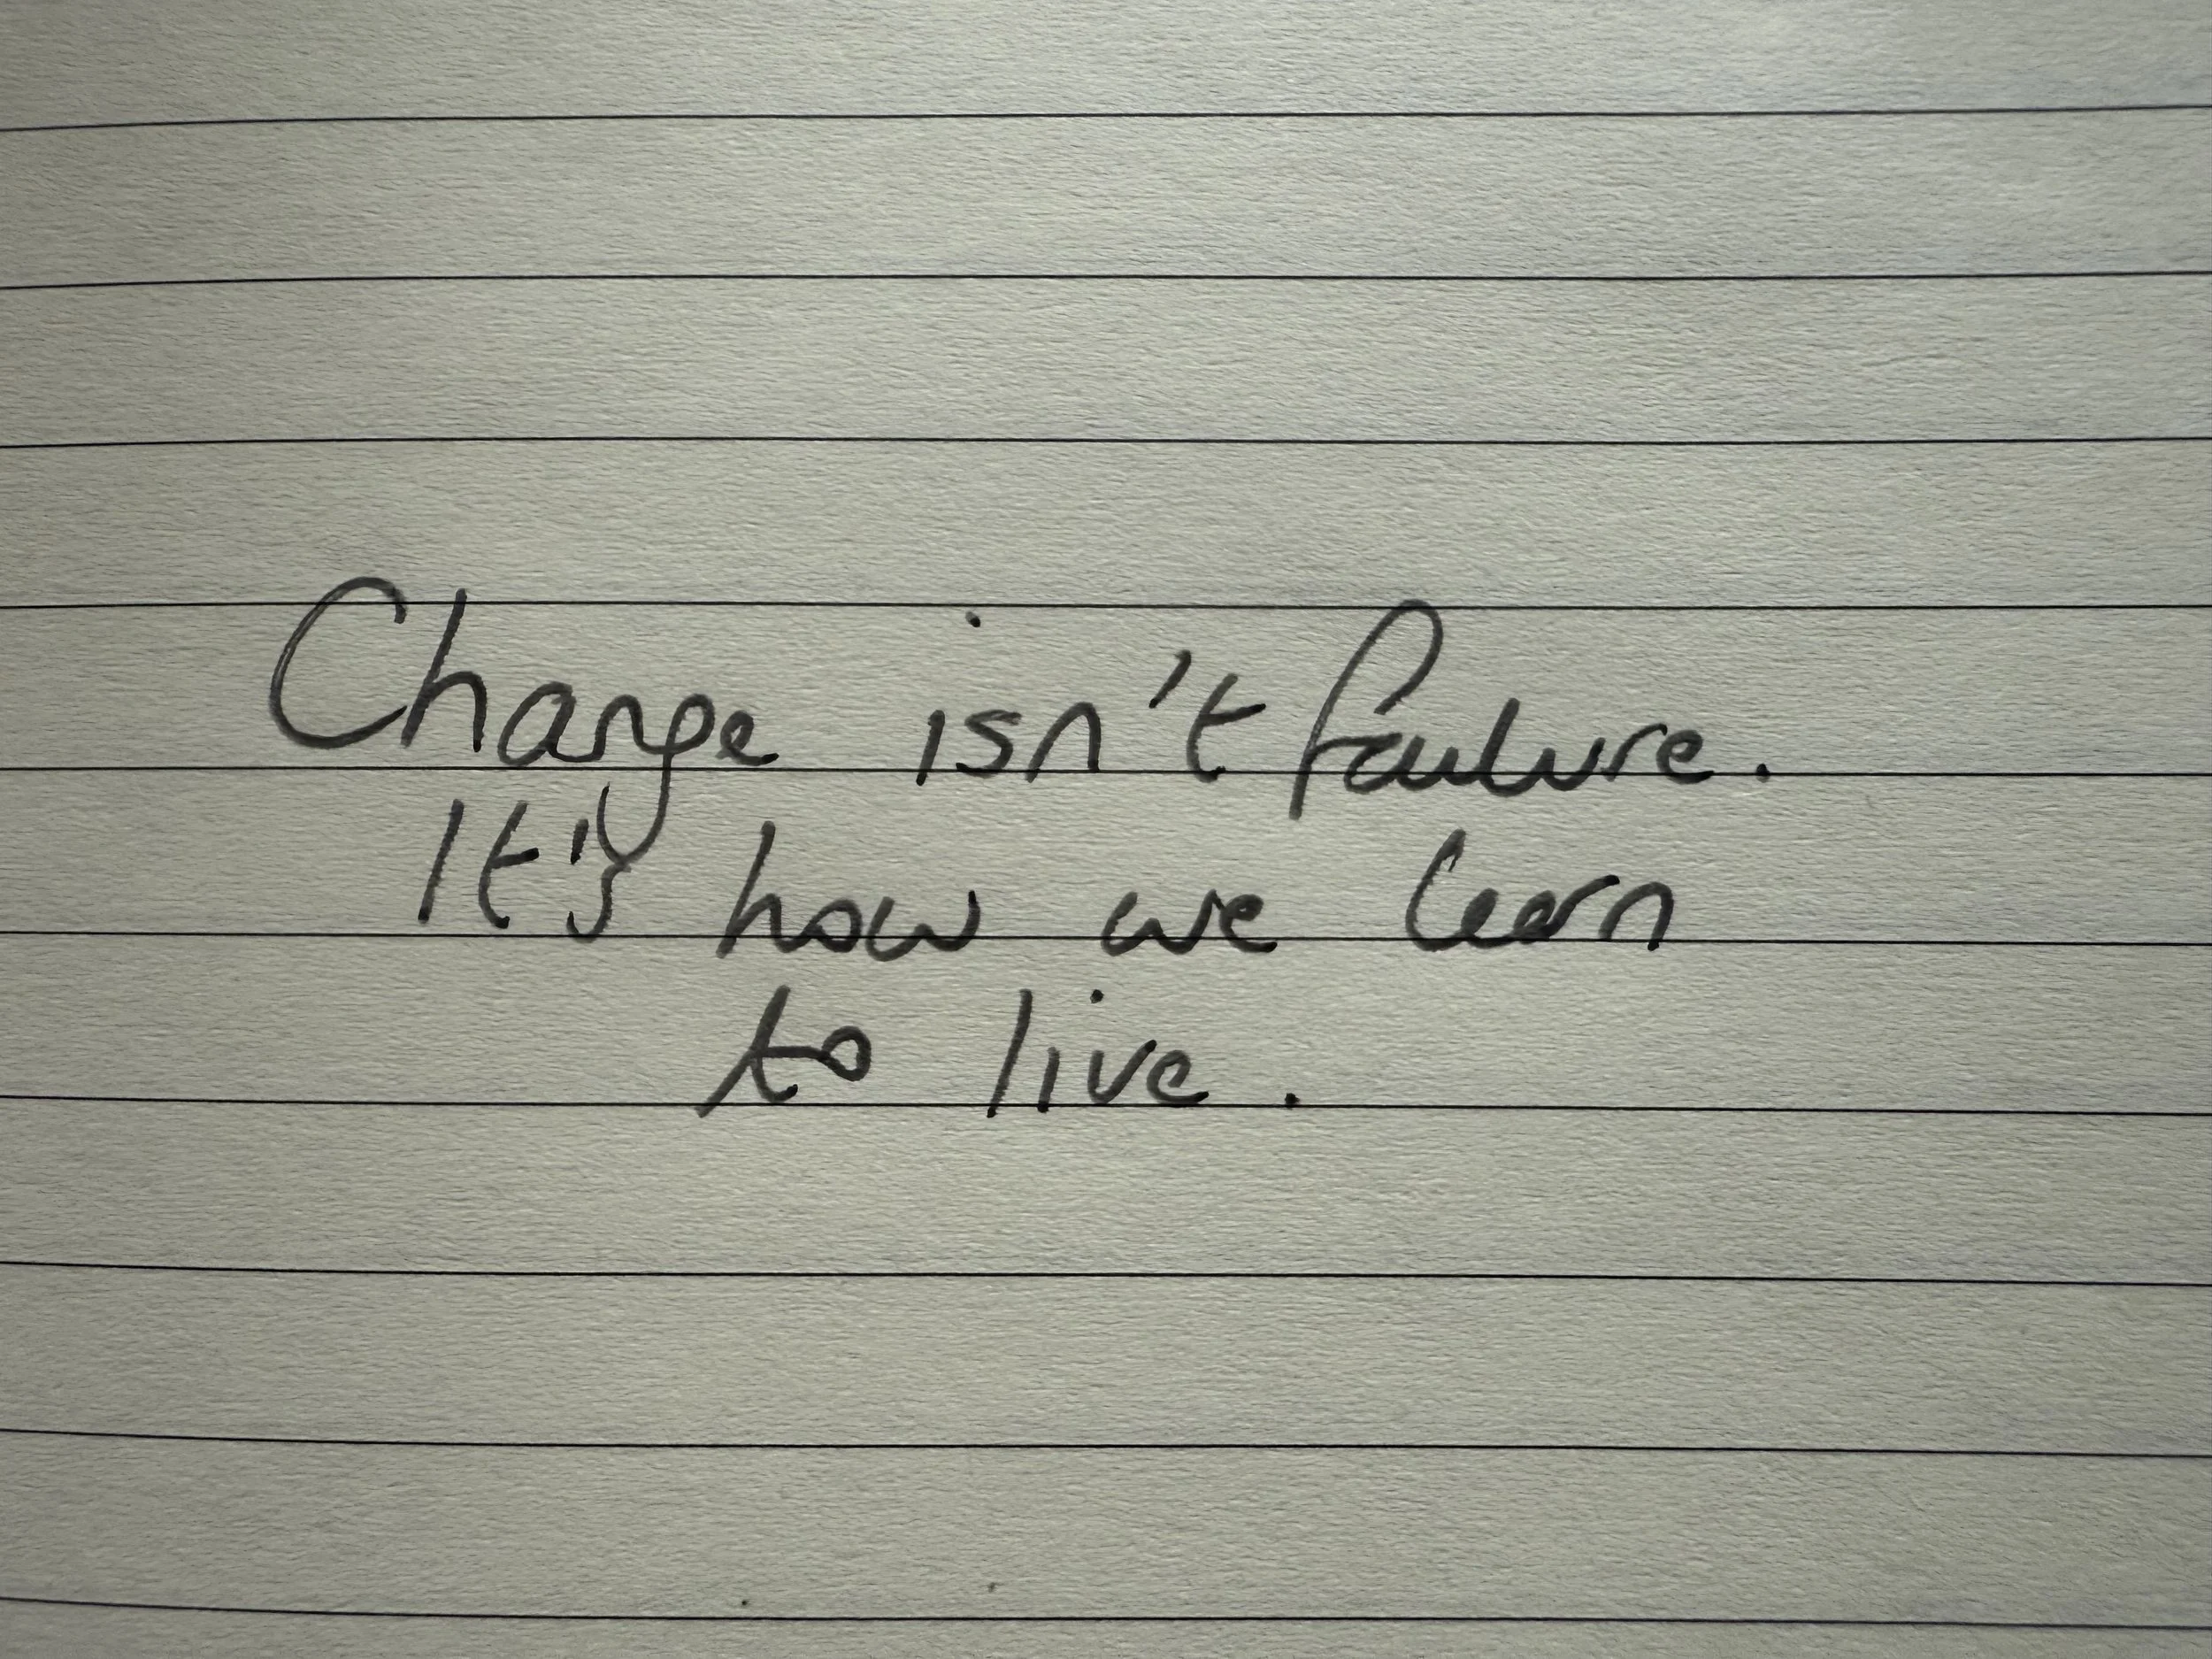 Change isn't failure.
It's how we learn
to live.